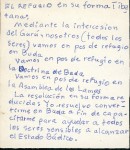 EL REFUGIO en su forma Tibe
tana:
Mediante la intercesion
del Gurú nosotros (todos los
seres) vamos en pos de refugio
en Buda.
Vamos en pos de refugio en
la Doctrina de Buda
Vamos en pos de refugio en
la Asamblea de los Lamas
La resolución en su forma re
ducida: Yo resuelvo conver
tirme en Buda a fin de capaci
tarme para ayudar a todos
los seres sensibles a alcanzar
el Estado Búdico.